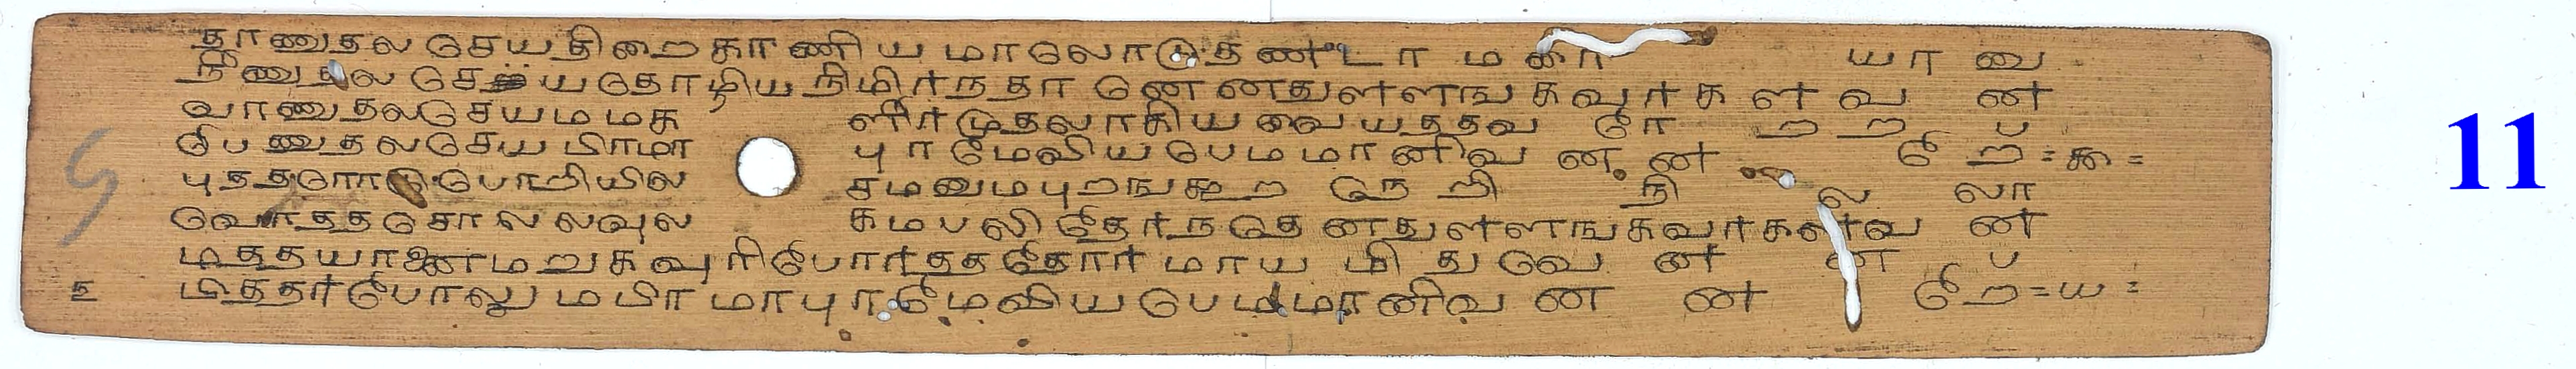 தாணுதல செய திறை காணி ய மாலொடுதண டா ம கா யா வை
நீணுதல செய தொழிய நிமிரநதா னெனதுளளங கவர க ள வ ன
வாணுதல செய மமக ளிர முதலாகிய வை யததவ ரே ற ற ப
பேணுதல செய பிரமா புர மேவிய பெம மானிவ ன ன றே = க =
புததரொடு பொறியில சமணும புறஙகூற நெ றி நி ல லா
வொதத சொலலவுல கம பலி தேரநதெ னதுளளங கவர களவ ன
மததயானை மறுக வுரி போரததத தோர மாய மி து வெ ன ன ப
பிததர போலு ம பிர மாபுர மேவிய பெம மானிவ ன ன றே = ய =
உ
11